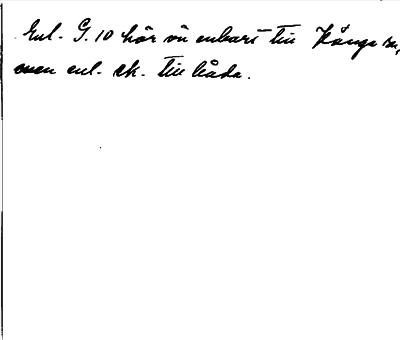 Enl. G. 10 hör vü enbart till Kånga sn,
men enl. ek. till båda.